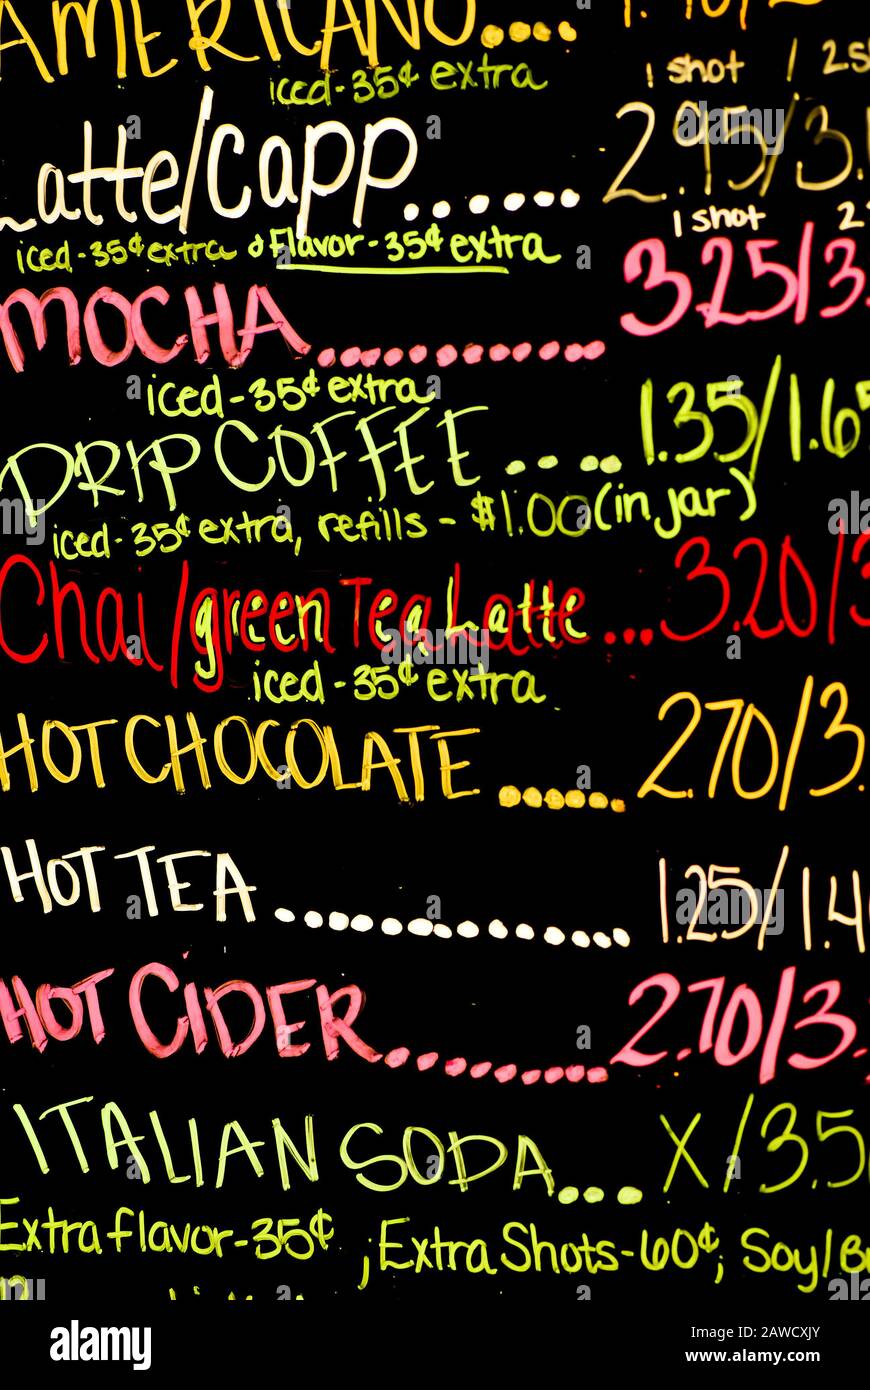 AMERICANO....
iced-35¢ extra
1 shot / 2
Latte/Capp....... 2.95/3.
1 shot 2
iced-35¢ extra & Flavor-35¢ extra
MOCHA............ 3.25/3.
iced-35¢ extra
DRIP COFFEE .... 1.35/1.65
iced-35¢ extra, refills - $1.00 (in jar)
Chai/green Tea Latte ... 3.20/3
iced-35¢ extra
HOT CHOCOLATE ...... 2.70/3.
HOT TEA ............. 1.25/1.4
HOT CIDER.......... 2.70/3.
ITALIAN SODA... X/3.5
Extra flavor-35¢ ; Extra Shots-60¢; Soy/
alamy
Image ID: 2AWCXJY
www.alamy.com